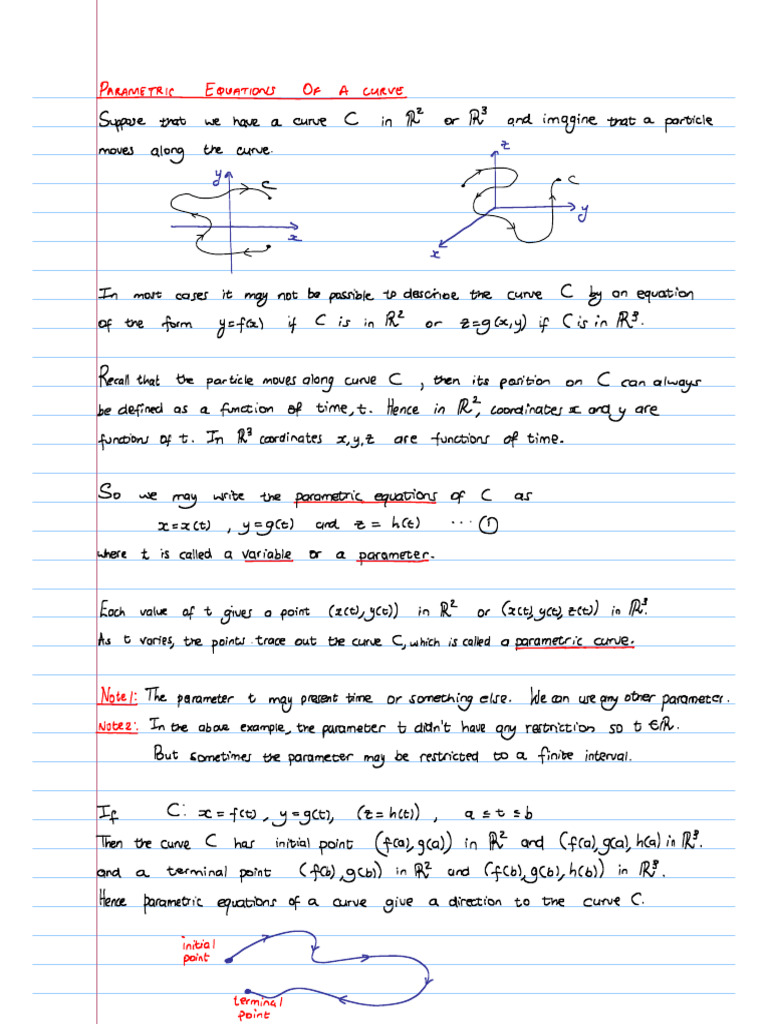 PARAMETRIC EQUATIONS OF A CURVE
Suppose that we have a curve C in ℝ² or ℝ³ and imagine that a particle
moves along the curve.
y C x
z C y x
In most cases it may not be possible to describe the curve C by an equation
of the form y=f(x) if C is in ℝ² or z=g(x,y) if C is in ℝ³.
Recall that the particle moves along curve C, then its position on C can always
be defined as a function of time, t. Hence in ℝ², coordinates x and y are
functions of t. In ℝ³ coordinates x,y,z are functions of time.
So we may write the parametric equations of C as
x=x(t), y=g(t) and z=h(t) ... ①
where t is called a variable or a parameter.
Each value of t gives a point (x(t),y(t)) in ℝ² or (x(t),y(t),z(t)) in ℝ³.
As t varies, the points trace out the curve C, which is called a parametric curve.
Note1: The parameter t may present time or something else. We can use any other parameter.
Note2: In the above example, the parameter t didn't have any restriction so t∈ℝ.
But sometimes the parameter may be restricted to a finite interval.
If C: x=f(t), y=g(t), (z=h(t)), a≤t≤b
Then the curve C has initial point (f(a),g(a)) in ℝ² and (f(a),g(a),h(a) in ℝ³.
and a terminal point (f(b),g(b)) in ℝ² and (f(b),g(b),h(b)) in ℝ³.
Hence parametric equations of a curve give a direction to the curve C.
initial
point
terminal
point